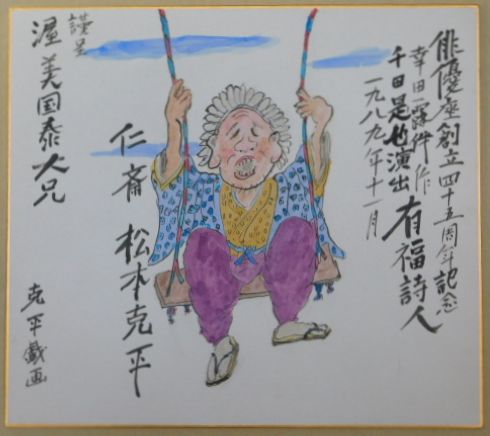 俳優座創立四十五周年記念
幸田露伴作
千田是也演出
一九八九年十一月
有福詩人
仁斎 松本克平
謹呈
渥美国泰大兄
克平戯画